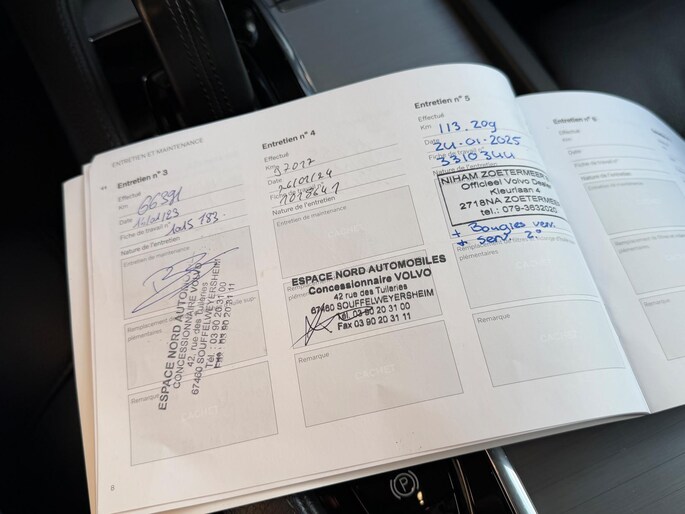 ENTRETIEN ET MAINTENANCE
Entretien n° 3
Effectué
Km 66391
Date 14/01/23
Fiche de travail n° 1015 783.
Nature de l'entretien
Entretien de maintenance
ESPACE NORD AUTOMOBILES
CONCESSIONNAIRE VOLVO
42, rue des Tuileries
67460 SOUFFELWEYERSHEIM
Tél : 03 90 20 31 00
Fax : 03 90 20 31 11
Remarque
CACHET
6
Entretien n° 4
Effectué
Km 92017
Date 26/01/24
Fiche de travail n°
Nature de l'entretien
Entretien de maintenance
CACHET
ESPACE NORD AUTOMOBILES
Concessionnaire VOLVO
42 rue des Tuileries
67460 SOUFFELWEYERSHEIM
Tél 03 90 20 31 00
Fax 03 90 20 31 11
Remarque
CACHET
Entretien n° 5
Effectué
Km 113.209
Date 24-01-2025
Fiche de travail n°
3310344
NIHAM ZOETERMEER
Officieel Volvo Dealer
Kleurlaan 4
2718NA ZOETERMEER
tel.: 079-3632020
+ Bougies
+ Serv.
Remarque
Entretien n° 6
Effectué
Km
Date
Fiche de travail n°
Nature de l'entretien
Entretien de maintenance
Remarque